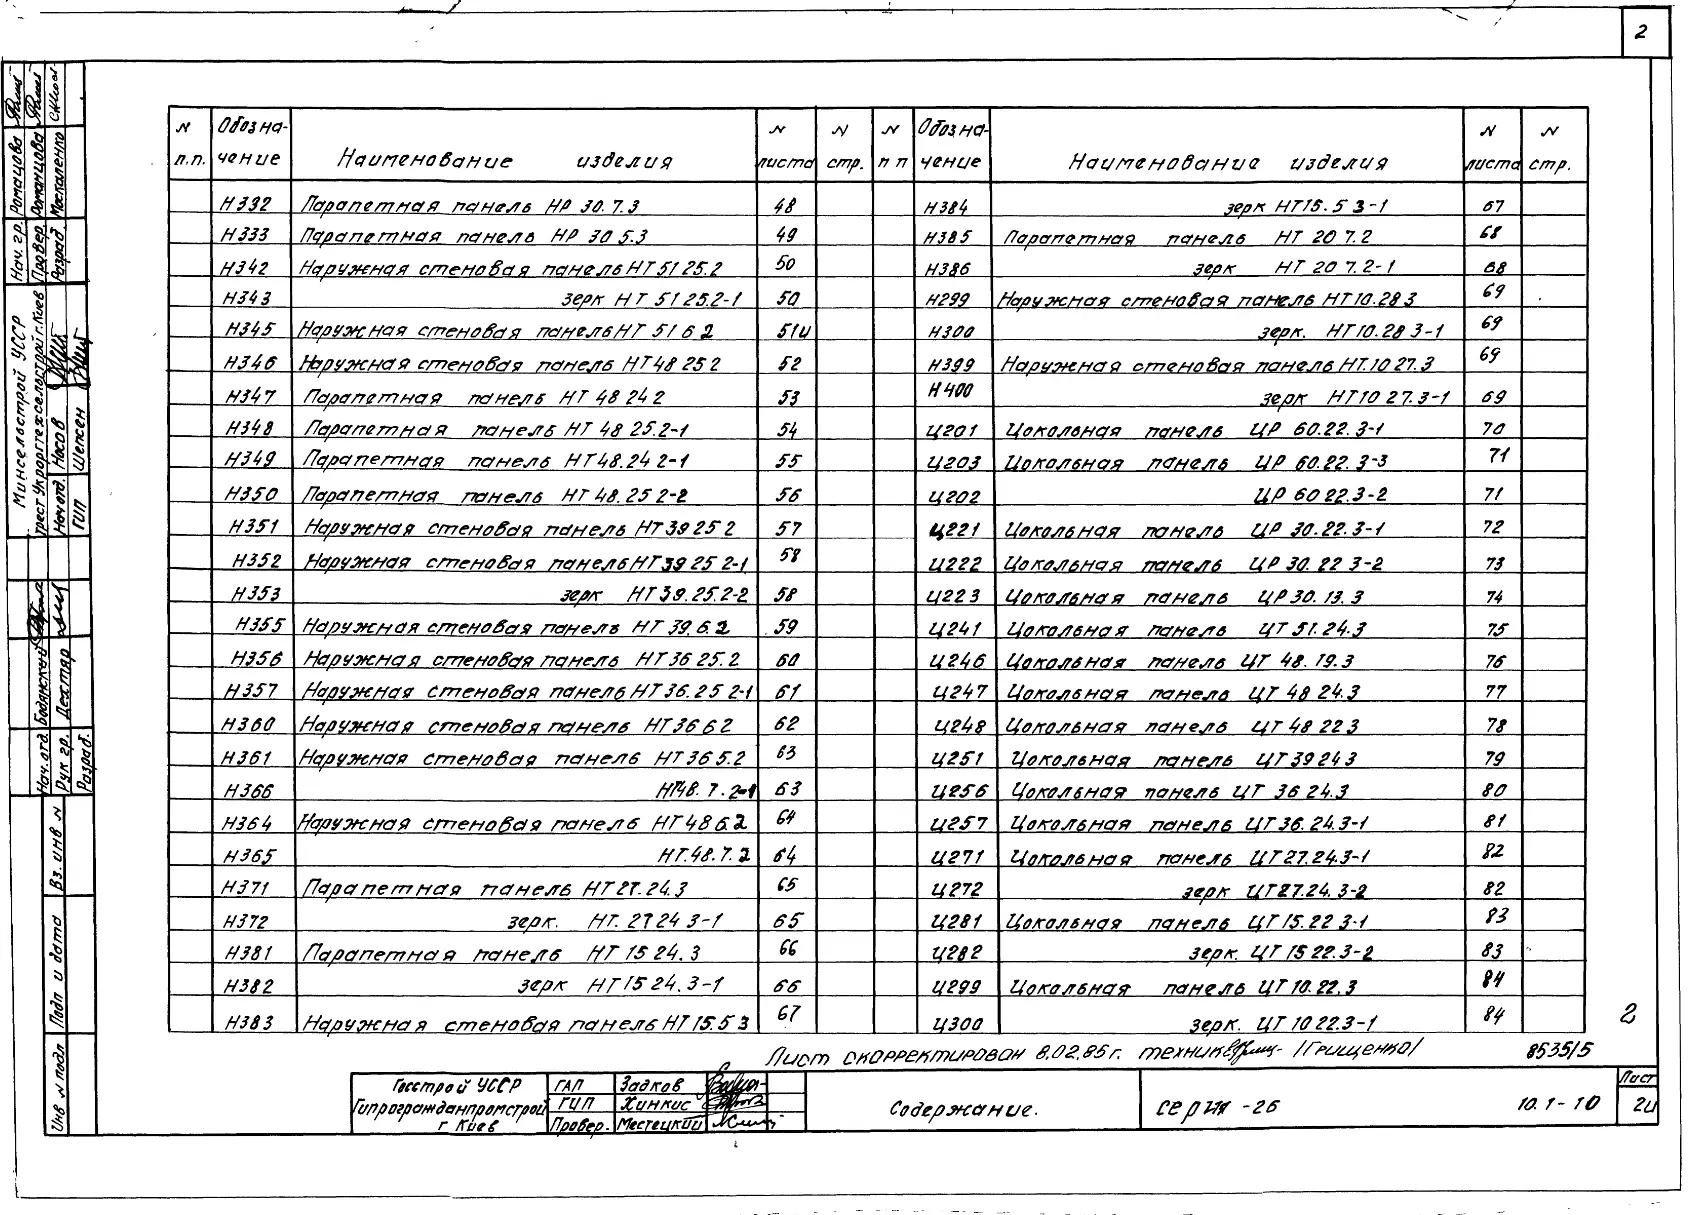 2
N п.п. Обозначение Наименование изделия N листа N стр.
Н332 Парапетная панель НР 30.7.3 48
Н333 Парапетная панель НР 30 5.3 49
Н342 Наружная стеновая панель НТ 51 25.2 50
Н343 зерк НТ 51 25.2-1 50
Н345 Наружная стеновая панель НТ 51 6 2 51и
Н346 Наружная стеновая панель НТ 48 25 2 52
Н347 Парапетная панель НТ 48 24 2 53
Н348 Парапетная панель НТ 48 25.2-1 54
Н349 Парапетная панель НТ 48.24 2-1 55
Н350 Парапетная панель НТ 48. 25 2-2 56
Н351 Наружная стеновая панель НТ 39 25 2 57
Н352 Наружная стеновая панель НТ 39 25 2-1 58
Н353 зерк НТ 39.25.2-2 58
Н355 Наружная стеновая панель НТ 39. 6.2 59
Н356 Наружная стеновая панель НТ 36 25.2 60
Н357 Наружная стеновая панель НТ 36.25 2-1 61
Н360 Наружная стеновая панель НТ 36 6 2 62
Н361 Наружная стеновая панель НТ 36 5.2 63
Н366 НТ48. 7. 2-1 63
Н364 Наружная стеновая панель НТ 48 6.2 64
Н365 НТ.48.7.2 64
Н371 Парапетная панель НТ 27.24.3 65
Н372 зерк. НТ. 27 24 3-1 65
Н381 Парапетная панель НТ 15 24.3 66
Н382 зерк НТ 15 24.3-1 66
Н383 Наружная стеновая панель НТ 15.5 3 67
N п п Обозначение Наименование изделия N листа N стр.
Н384 зерк НТ 15.5 3-1 67
Н385 Парапетная панель НТ 20 7.2 68
Н386 зерк НТ 20 7.2-1 68
Н299 Наружная стеновая панель НТ 10.28 3 69
Н300 зерк. НТ 10.28 3-1 69
Н399 Наружная стеновая панель НТ.10 27.3 69
Н400 зерк НТ 10 27.3-1 69
Ц201 Цокольная панель ЦР 60.22.3-1 70
Ц203 Цокольная панель ЦР 60.22.3-3 71
Ц202 ЦР 60 22.3-2 71
Ц221 Цокольная панель ЦР 30.22.3-1 72
Ц222 Цокольная панель ЦР 30.22 3-2 73
Ц223 Цокольная панель ЦР 30.13.3 74
Ц241 Цокольная панель ЦТ 51.24.3 75
Ц246 Цокольная панель ЦТ 48.19.3 76
Ц247 Цокольная панель ЦТ 48 24.3 77
Ц248 Цокольная панель ЦТ 48 22 3 78
Ц251 Цокольная панель ЦТ 39 24 3 79
Ц256 Цокольная панель ЦТ 36 24.3 80
Ц257 Цокольная панель ЦТ 36.24.3-1 81
Ц271 Цокольная панель ЦТ 27.24.3-1 82
Ц272 зерк ЦТ 27.24.3-2 82
Ц281 Цокольная панель ЦТ 15.22 3-1 83
Ц282 зерк. ЦТ 15 22.3-2 83
Ц299 Цокольная панель ЦТ 10.22.3 84
Ц300 зерк. ЦТ 10 22.3-1 84
2
Лист скорректирован 8.02.85г. техник /Грищенко/ 8535/5
Госстрой УССР
Гипрогражданпромстрой
г Киев
ГАП Задков
ГИП Хинкис
Провер. Местецкий
Содержание.
серия -26 10.1-10
Лист
2и
Минсельстрой УССР
трест Укроргтехсельстрой г. Киев
Нач. гр. Романцова
Провер. Романцова
Разраб Москаленко
Нач отд. Носов
ГИП Шепсен
Нач. отд. Боднянский
Рук гр. Дехтяр
Разраб.
Вз. инв N
Подп и дата
Инв N подл